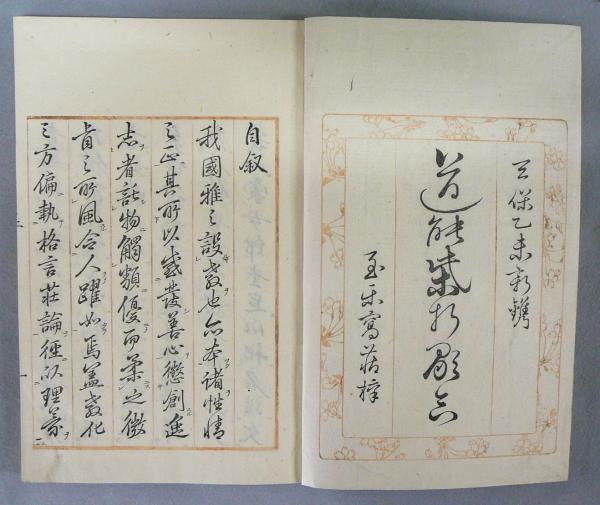 天保乙未新鐫
道能柴折
至樂窩藏梓
自叙
我國雅之設教也亦本諸性情
之正其所以感發善心懲創逸
志者託物觸類優而柔之微
旨之所風令人躍如焉蓋教化
之方偏執格言莊論徑以理義